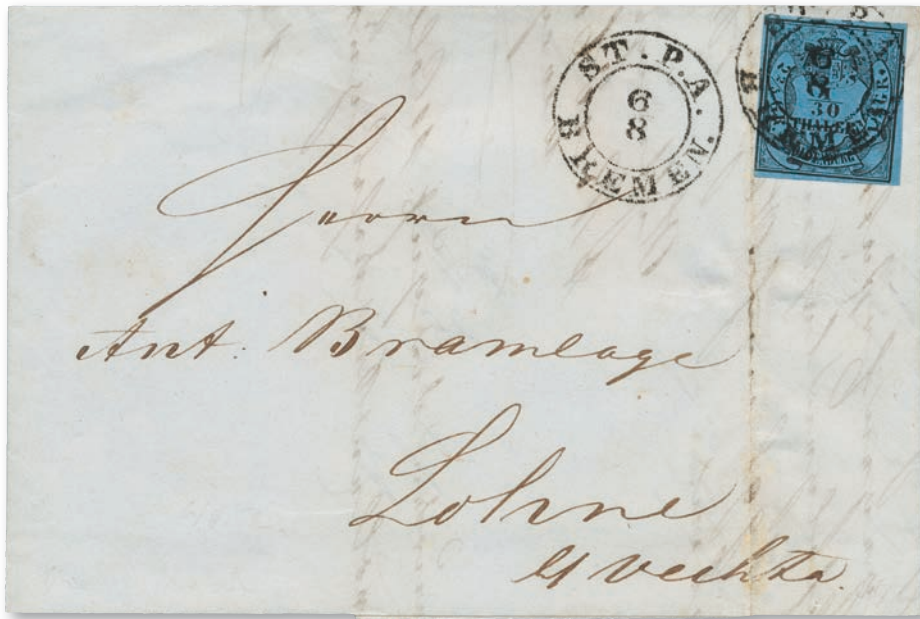 ST. P. A.
6
8
BREMEN.
30
THALER
Herrn
Ant. Bramlage
Lohne
b/ Vechta.